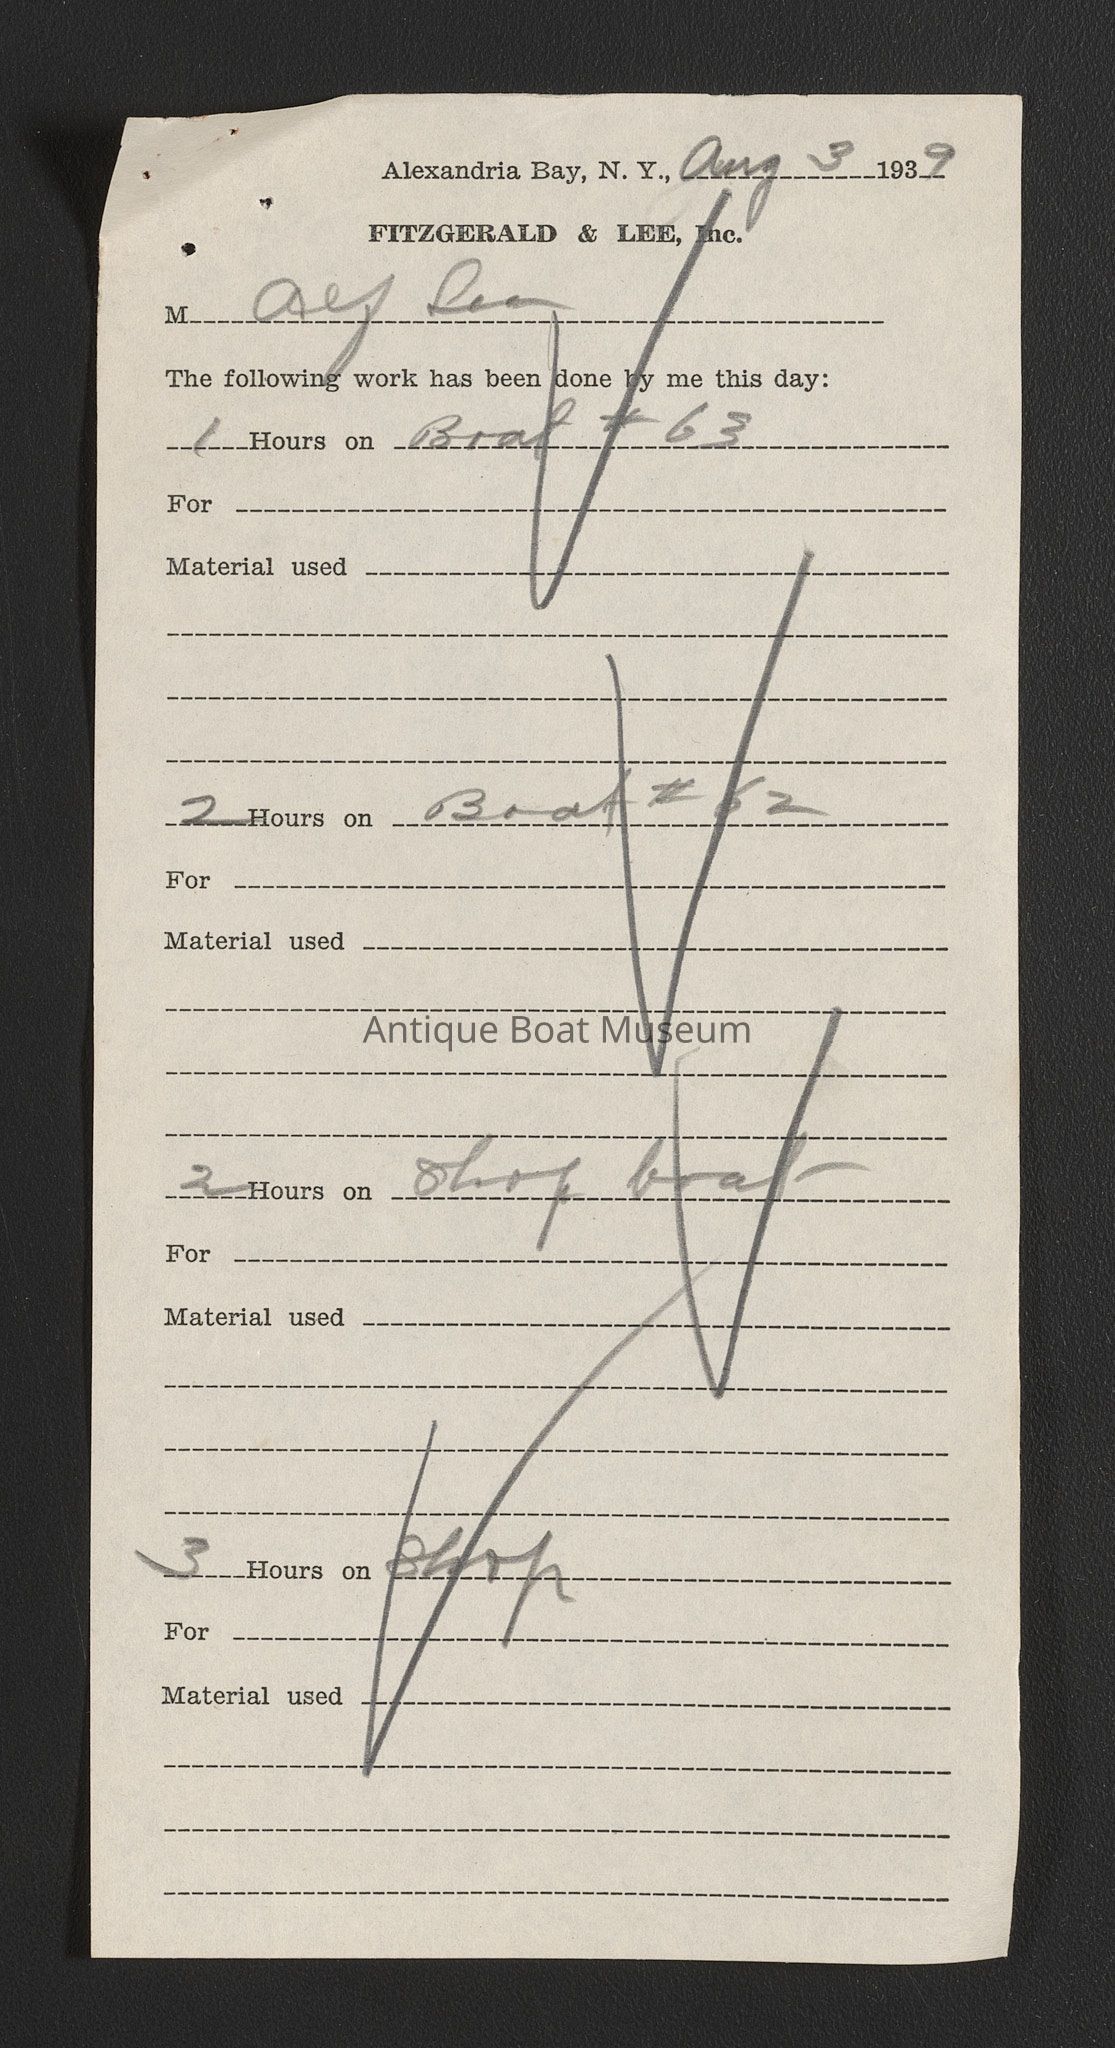 Alexandria Bay, N. Y., Aug 3 1939
FITZGERALD & LEE, Inc.
M Alf Lee
The following work has been done by me this day:
1 Hours on Boat # 63
For
Material used
2 Hours on Boat # 62
For
Material used
Antique Boat Museum
2 Hours on Shop boat
For
Material used
3 Hours on Shop
For
Material used